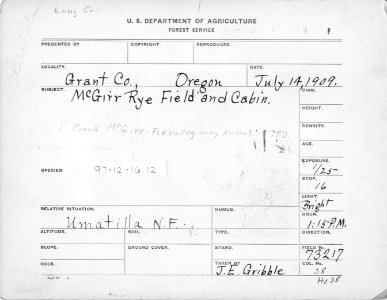 Lang Co.
U. S. DEPARTMENT OF AGRICULTURE
FOREST SERVICE
PRESENTED BY COPYRIGHT. REPRODUCED.
LOCALITY. DATE.
Grant Co., Oregon July 14, 1909.
SUBJECT. DIAM.
McGirr Rye Field and Cabin.
HEIGHT.
DENSITY.
(Frank McGirr - Fox Valley may
AGE.
EXPOSURE.
1/25
SPECIES 97-12-16 12
STOP.
16
LIGHT.
Bright
RELATIVE SITUATION. HUMUS. HOUR.
Umatilla N.F. 1:15 P.M.
ALTITUDE. SOIL. TYPE. DIRECTION.
SLOPE. GROUND COVER. STAND. FIELD No.
73217
ROCK. TAKEN BY COL. No.
J.E. Gribble 38
No 38